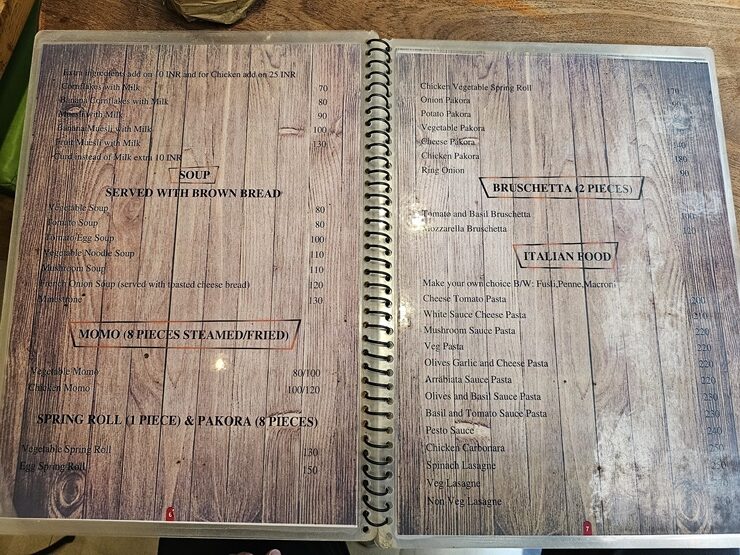 Extra ingredients add on 10 INR and for Chicken add on 25 INR
Cornflakes with Milk 70
Banana Cornflakes with Milk 80
Muesli with Milk 90
Banana Muesli with Milk 100
Fruit Muesli with Milk 130
Curd instead of Milk extra 10 INR
SOUP
SERVED WITH BROWN BREAD
Vegetable Soup 80
Tomato Soup 80
Tomato Egg Soup 100
Vegetable Noodle Soup 110
Mushroom Soup 110
French Onion Soup (served with toasted cheese bread) 120
Minestrone 130
MOMO (8 PIECES STEAMED/FRIED)
Vegetable Momo 80/100
Chicken Momo 100/120
SPRING ROLL (1 PIECE) & PAKORA (8 PIECES)
Vegetable Spring Roll 130
Egg Spring Roll 150
6
Chicken Vegetable Spring Roll 170
Onion Pakora
Potato Pakora
Vegetable Pakora
Cheese Pakora 140
Chicken Pakora 180
Ring Onion 90
BRUSCHETTA (2 PIECES)
Tomato and Basil Bruschetta 100
Mozzarella Bruschetta 120
ITALIAN FOOD
Make your own choice B/W: Fusli,Penne,Macroni
Cheese Tomato Pasta 200
White Sauce Cheese Pasta 210
Mushroom Sauce Pasta 220
Veg Pasta 220
Olives Garlic and Cheese Pasta 220
Arrabiata Sauce Pasta 220
Olives and Basil Sauce Pasta 230
Basil and Tomato Sauce Pasta 230
Pesto Sauce 240
Chicken Carbonara 250
Spinach Lasagne 250
Veg Lasagne
Non Veg Lasagne
7